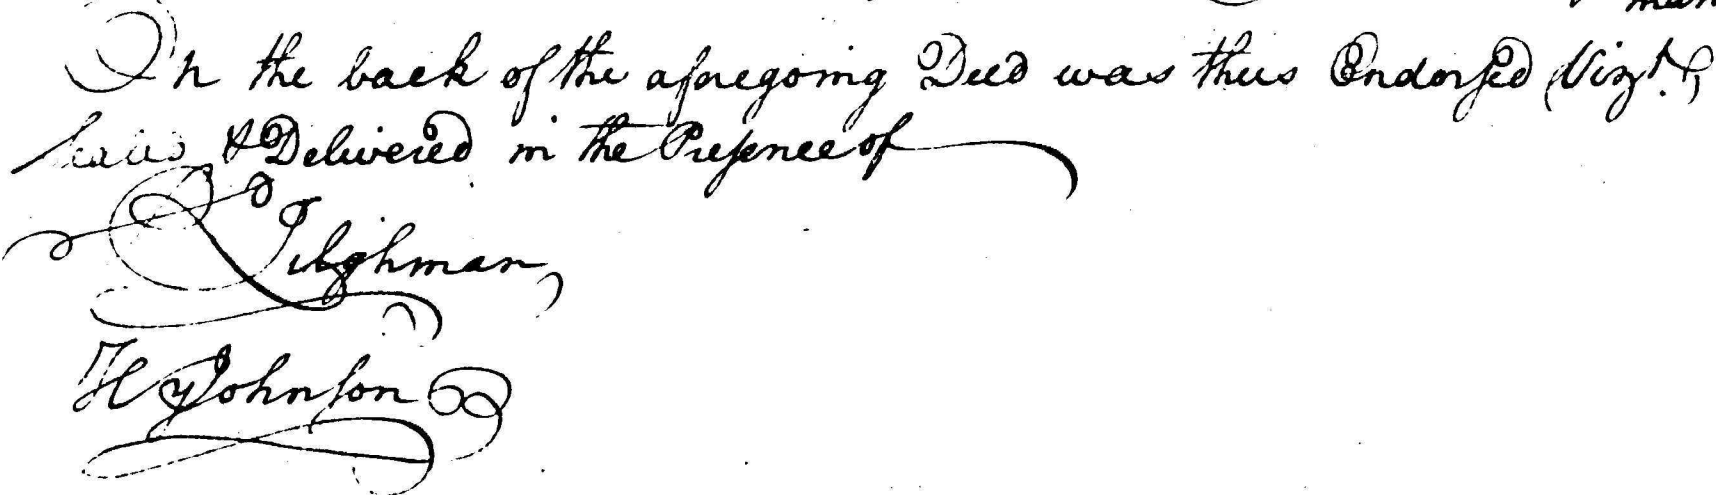 On the back of the aforegoing Deed was thus Endorsed Vizt.
Sealed & Delivered in the Presence of
Tilghman
Hy Johnson